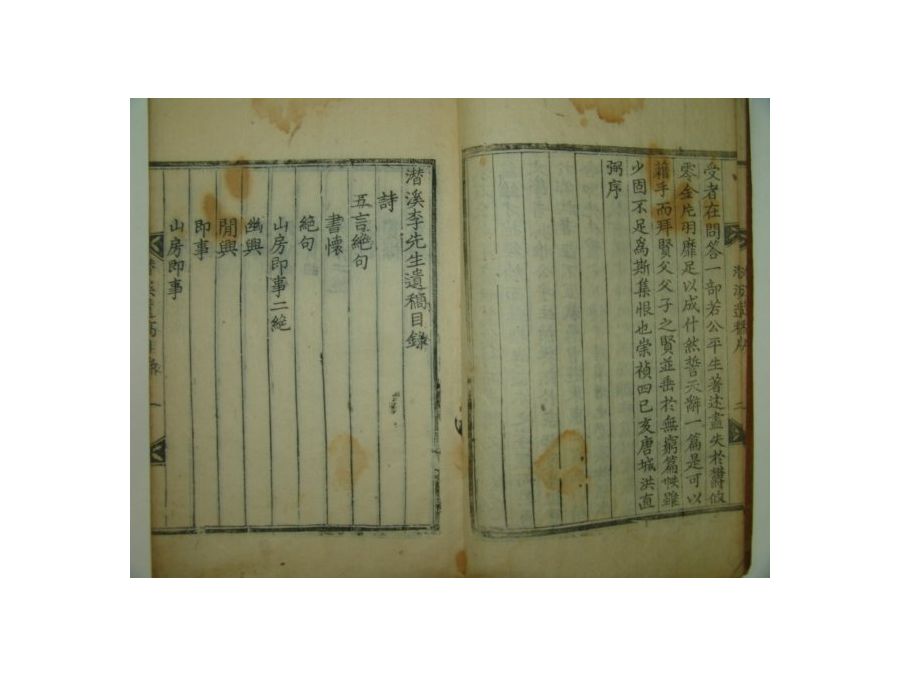 受者在問答一部若公平生著述盡失於鬱攸
零金片羽靡足以成什然誓天辭一篇是可以
藉手而拜賢父父子之賢並垂於無窮篇帙雖
少固不足爲斯集恨也崇禎四己亥唐城洪直
弼序
潛溪李先生遺稿目錄
詩
五言絶句
書懷
絶句
山房即事二絶
幽興
閒興
即事
山房即事